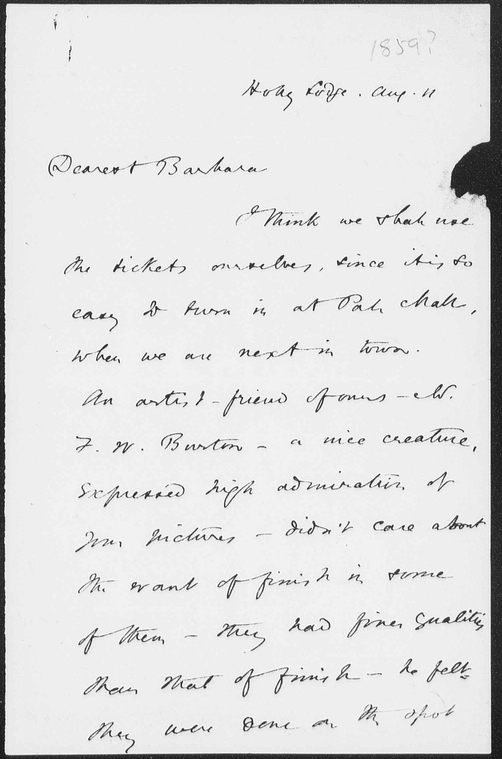 1859?
Holly Lodge. Aug. 11
Dearest Barbara
I think we shall use
the tickets ourselves, since it is so
easy to turn in at Pall Mall,
when we are next in town.
An artist-friend of ours — Mr.
F. W. Burton — a nice creature,
expressed high admiration of
your pictures — didn't care about
the want of finish in some
of them — they had finer qualities
than that of finish — he felt
they were done on the spot